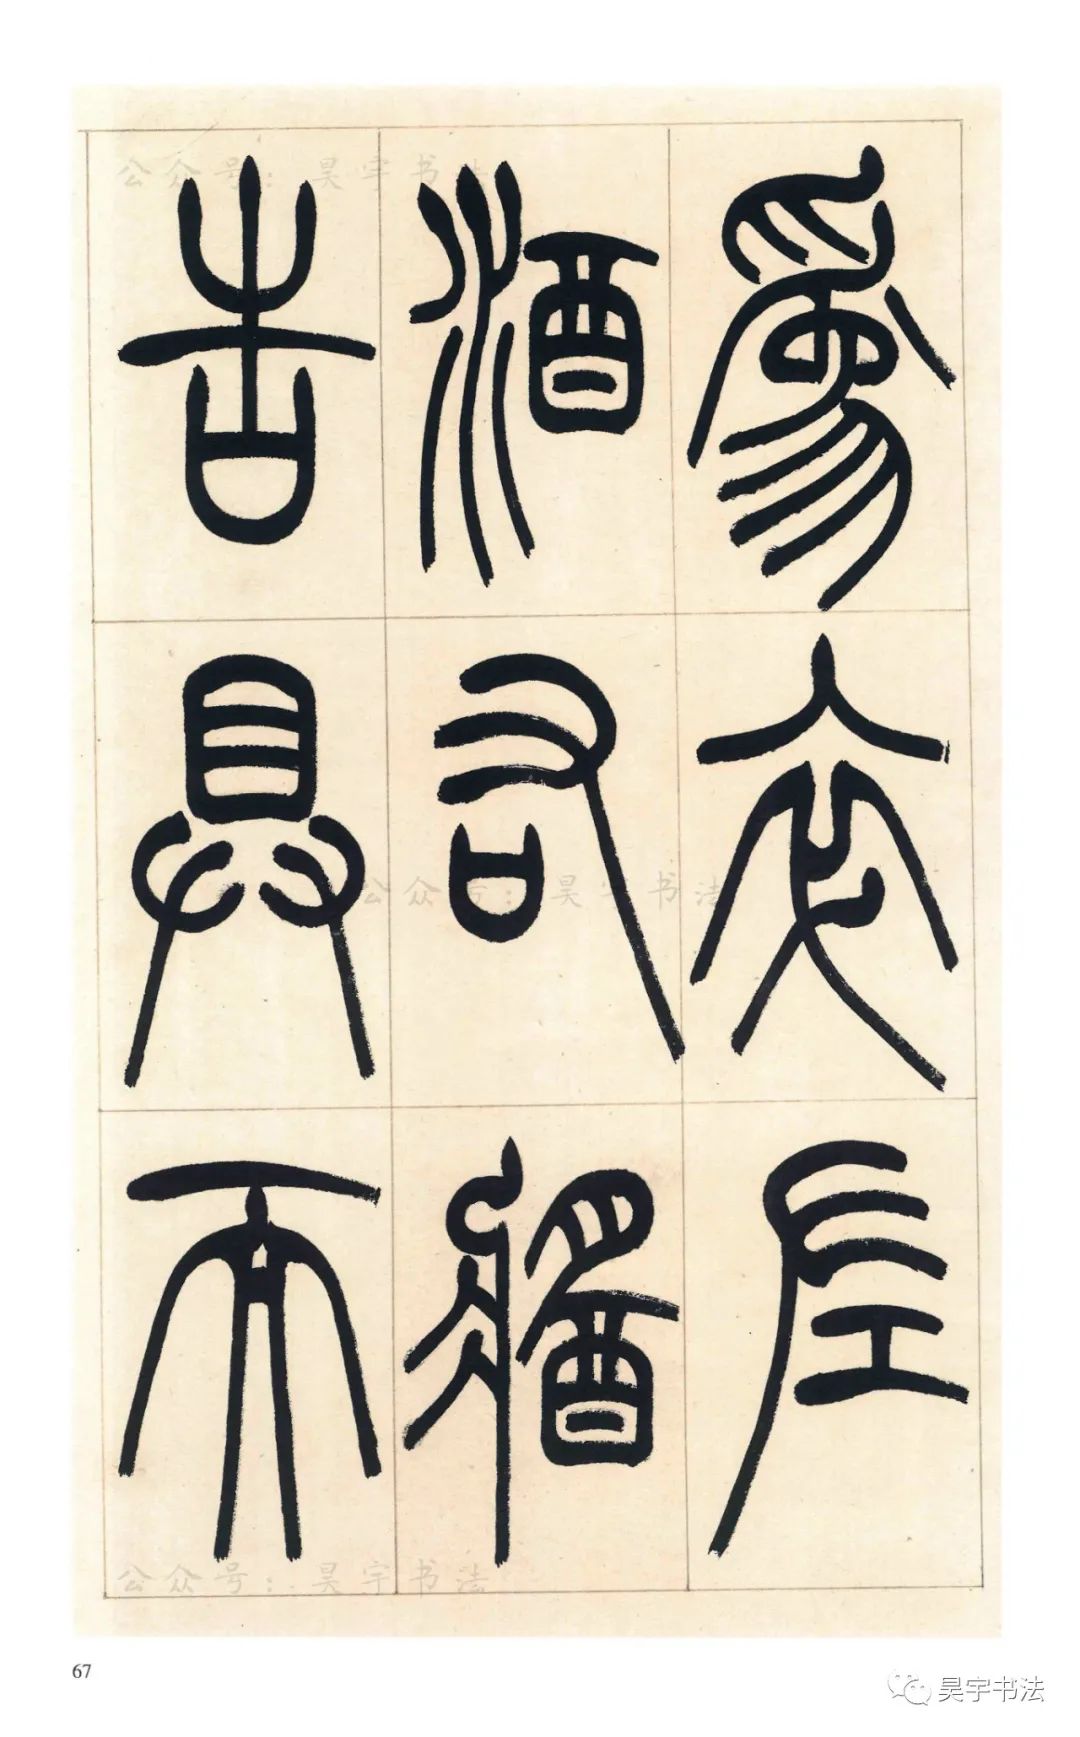 公众号：昊宇书法
爲卒左
酒右醬
告具而
公众号：昊宇书法
公众号：昊宇书法
67
昊宇书法